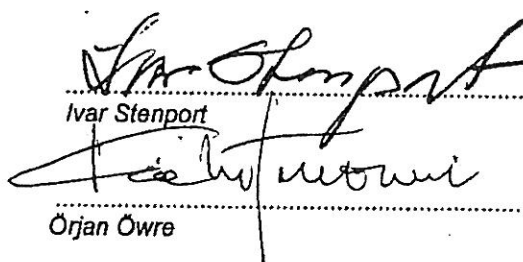 Ivar Stenport
Ivar Stenport
Örjan Öwre